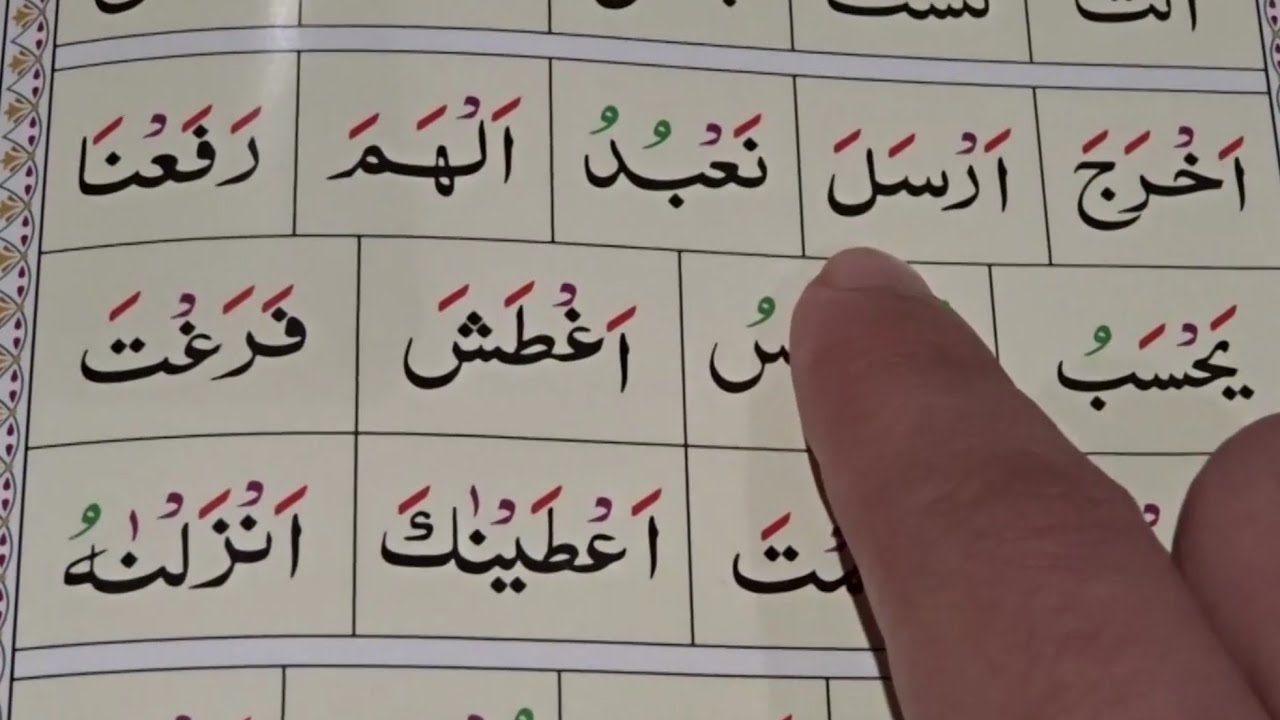 اَخْرَجَ اَرْسَلَ نَعْبُدُ اَلْهَمَ رَفَعْنَا
يَحْسَبُ اَغْطَشَ فَرَغْتَ
اَعْطَيْنٰكَ اَنْزَلْنٰهُ